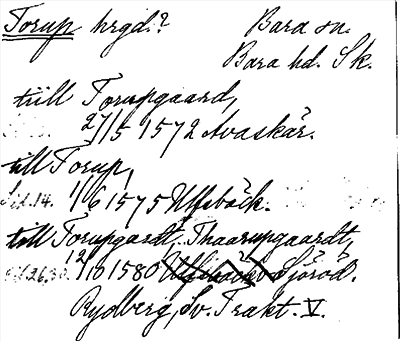 Torup hrgd.? Bara sn.
Bara hd. Sk.
till Torupgaard,
27/5 1572 Avaskär.
till Torup,
Sid. 14. 1/6 1575 Ulfsbäck.
till Torupgardt, Thaarupgaardt,
Sid 26.30. 12/10 1580 Sjöröd.
Rydberg, Sv. Trakt. V.